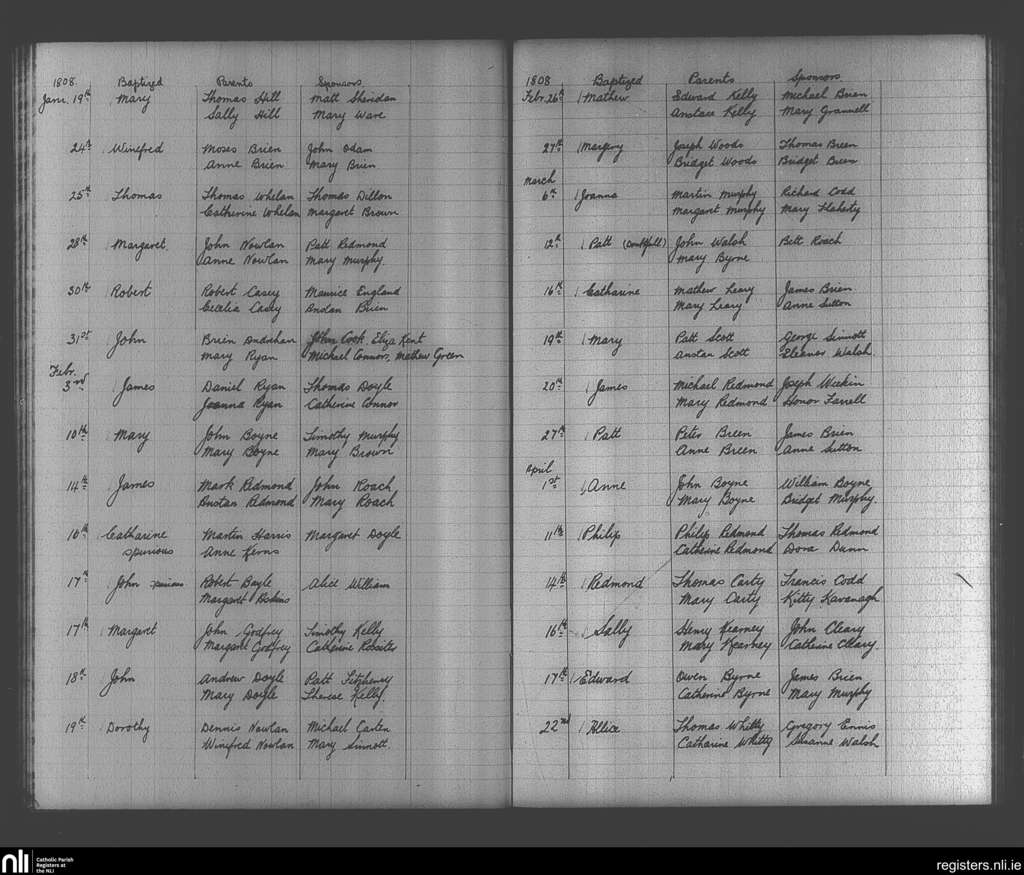 1808. Baptized Parents Sponsors
Janr. 19th Mary Thomas Hill Matt Sheridan
Sally Hill Mary Ware
24th Winefred Moses Brien John Odam
Anne Brien Mary Brien
25th Thomas Thomas Whelan Thomas Dillon
Catherine Whelan Margaret Brown
28th Margaret John Nowlan Patt Redmond
Anne Nowlan Mary Murphy.
30th Robert Robert Casey Maurice England
Cecelia Casey Anstan Brien
31st John Brien John Cook, Eliza Kent
Mary Ryan Michael Connor, Mathew Green
Febr.
3rd James Daniel Ryan Thomas Doyle
Joanna Ryan Catherine Connor
10th Mary John Boyne Timothy Murphy
Mary Boyne Mary Brown
14th James Mark Redmond John Roach
Anstan Redmond Mary Roach
10th Catharine Martin Harris Margaret Doyle
spurious Anne Ferns
17th John spurious Robert Bayle Alice William
Margaret
17th Margaret John Godfrey Timothy Kelly
Margaret Godfrey Catherine Rositer
18th John Andrew Doyle Patt Fitzhenry
Mary Doyle Therese Kelly.
19th Dorothy Dennis Nowlan Michael Carten
Winefred Nowlan Mary Sinnott.
1808 Baptized Parents Sponsors
Febr. 26th Mathew Edward Kelly Michael Brien
Anstace Kelly Mary Grannell
27th Margery Joseph Woods Thomas Brien
Bridget Woods Bridget Brien
March
6th Joanna Martin Murphy Richard Codd
Margaret Murphy Mary Flaherty
12th Patt (doubtfull) John Walsh Bett Roach
Mary Byrne
16th Catharine Mathew Leary James Brien
Mary Leary Anne Sutton
19th Mary Patt Scott George Sinnott
Anstan Scott Eleanor Walsh.
20th James Michael Redmond Joseph
Mary Redmond Honor Farrell
27th Patt Peter Breen James Brien
Anne Breen Anne Sutton
April
1st Anne John Boyne William Boyne
Mary Boyne Bridget Murphy.
11th Philip Philip Redmond Thomas Redmond
Catherine Redmond Dora Dunn
14th Redmond Thomas Carty Francis Codd
Mary Carty Kitty Kavanagh
16th Sally Henry Kearney John Cleary
Mary Kearney Catherine Cleary.
17th Edward Owen Byrne James Brien
Catherine Byrne Mary Murphy
22nd Allice Thomas Whitty Gregory Ennis
Catharine Whitty Susanne Walsh
nli Catholic Parish
Registers at
the NLI
registers.nli.ie